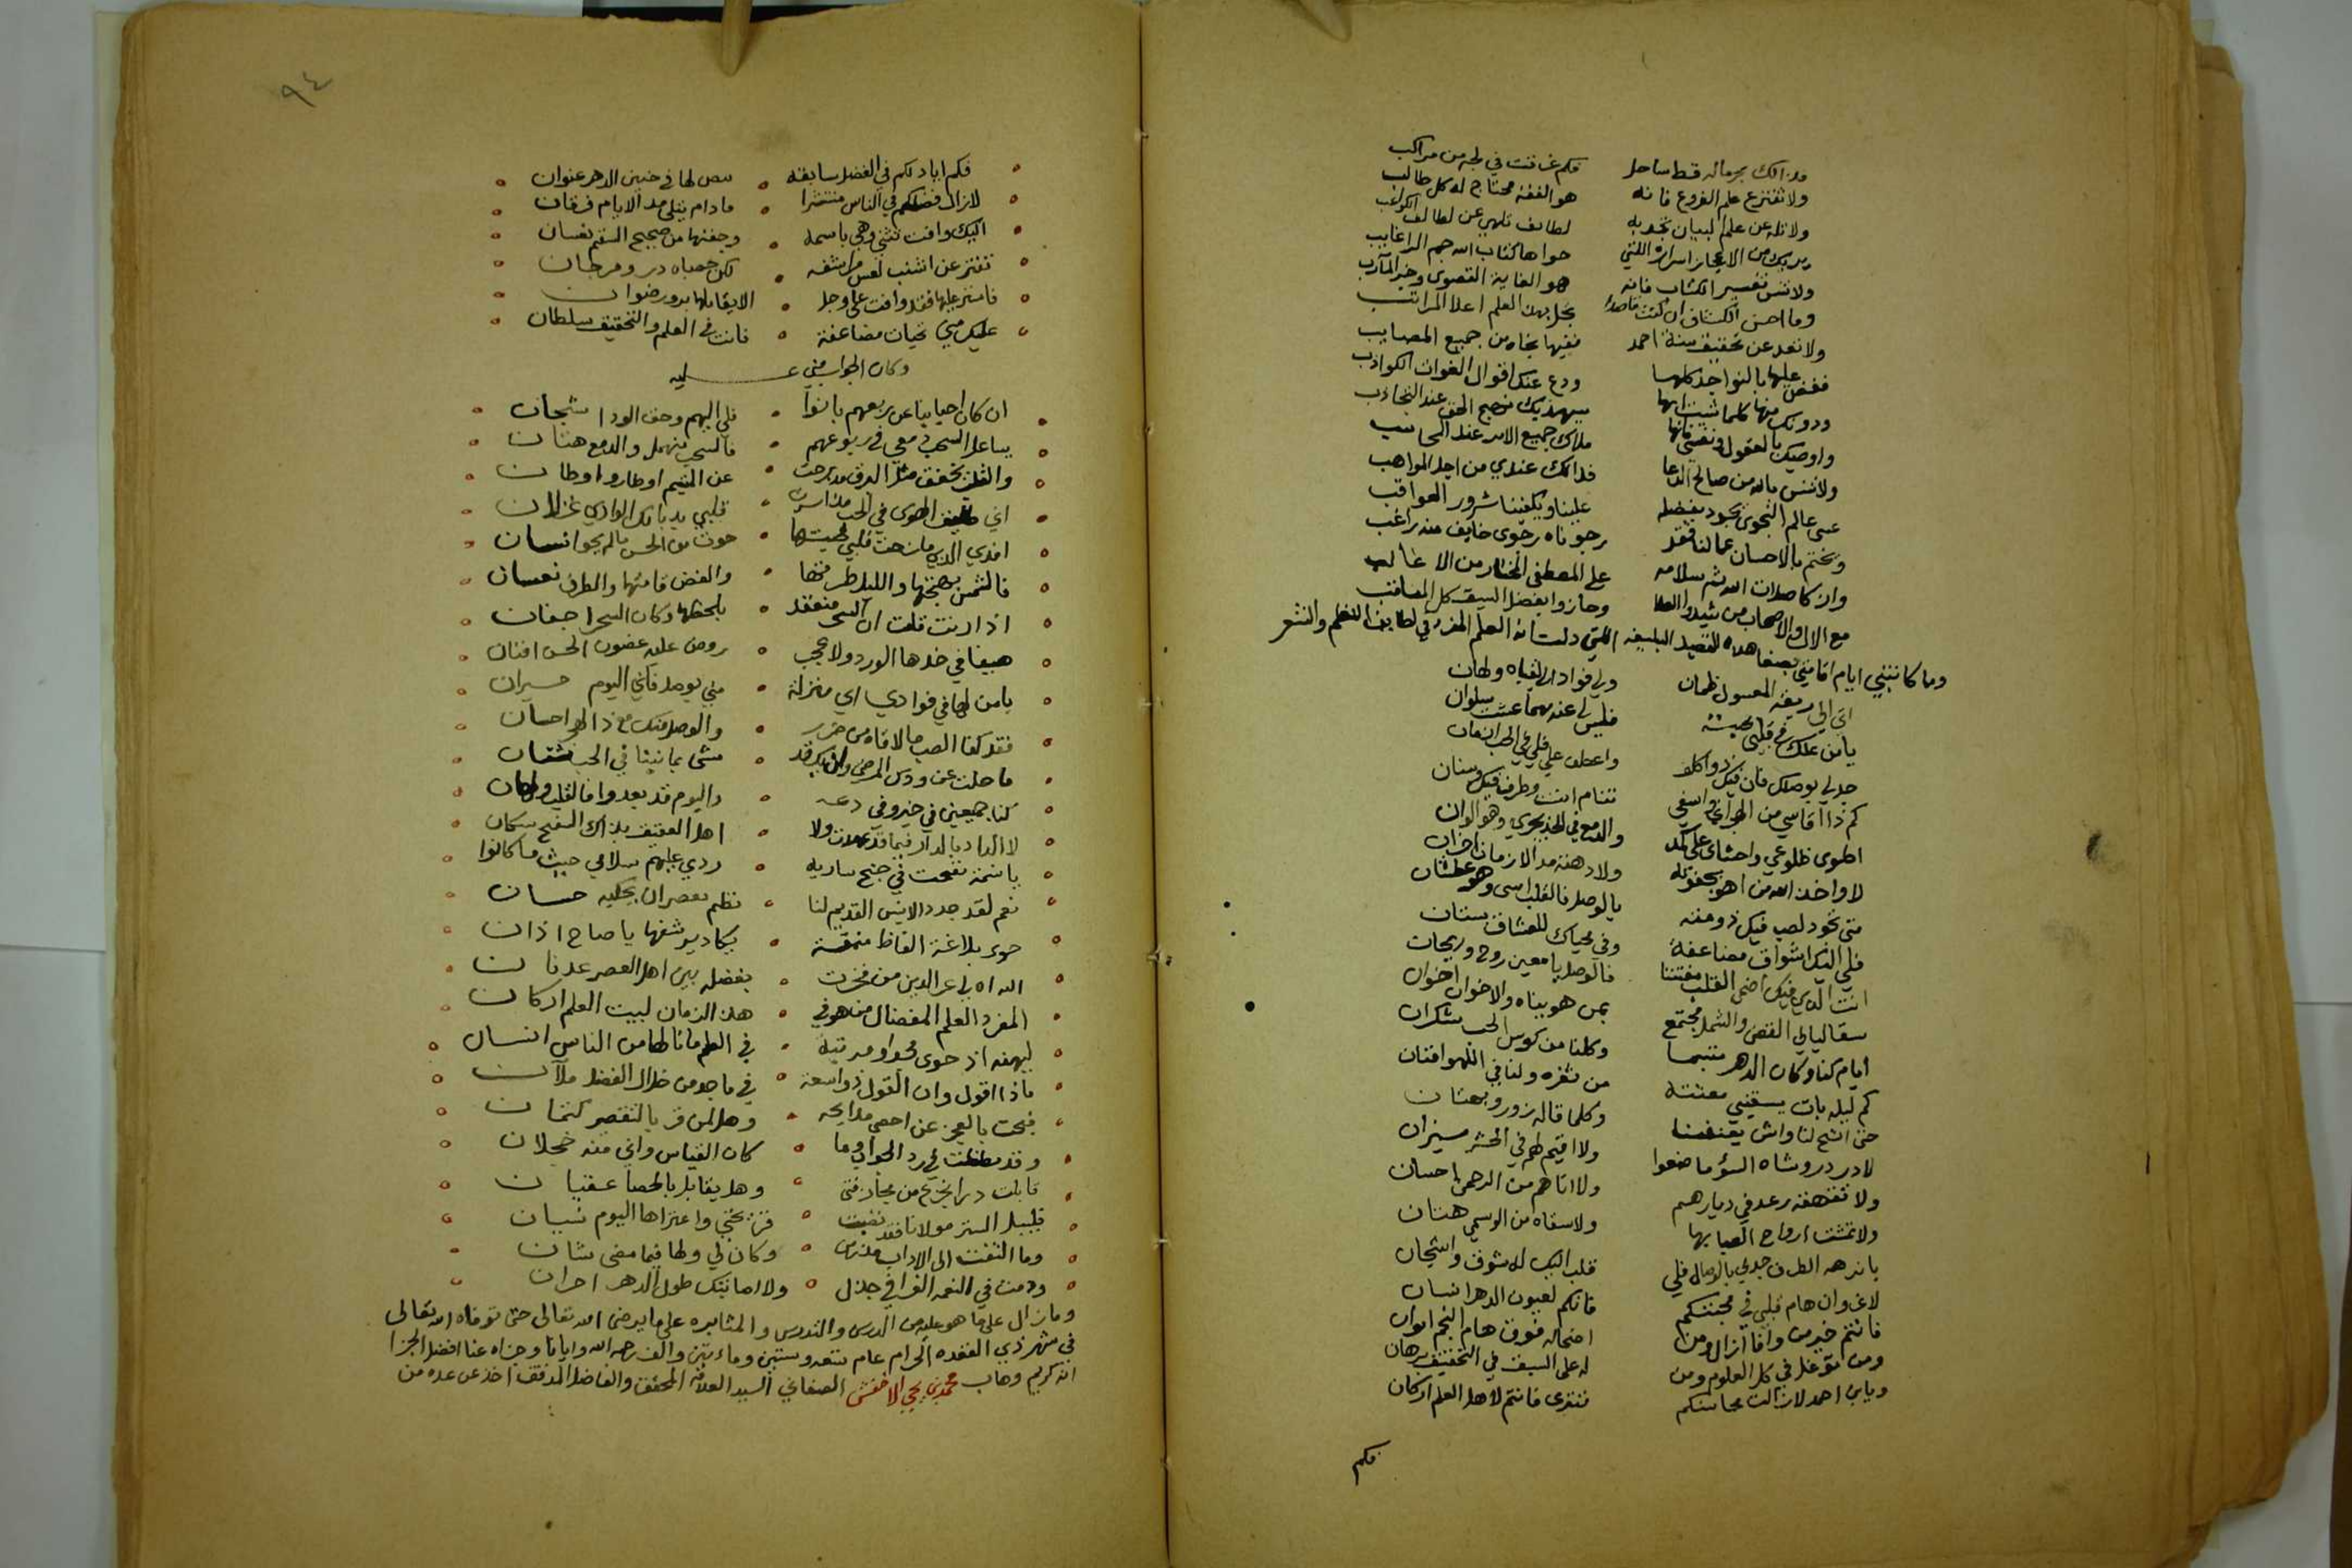 فذالك بحر ماله قط ساحل فكم غرقت في لجه من مراكب
ولا تفتر عن علم الفروع فانه هو الفقه محتاج له كل طالب
ولا تله عن علم البيان تجد به لطائف تلهي عن لطائف الكواعب
يريك من الاعجاز اسراره اللتي حواها كتاب الله جم الرغايب
ولا تنس تفسير الكتاب فانه هو الغاية القصوى وخير المآرب
وما احسن الكشاف ان كنت قاصدا بهذا العلم اعلا المراتب
ولا تعد عن تحقيق سنة احمد ففيها نجاه من جميع المصايب
فعض عليها بالنواجذ كلها ودع عنك اقوال الغوات الكواذب
ودونك منها كلما شيت انها سيهديك نهج الحق عند التجاذب
ملاك جميع الامر عند
ولا تنس ماله من صالح الدعا فذالك عندي من اجل المواهب
عسى عالم النجوى يجود بفضله علينا ويكفينا شرور العواقب
ونختم بالاحسان عمالنا فقد رجوناه رجوى خايف منه راغب
وازكا صلات الله ثم سلامه على المصطفى المختار من ال غالب
مع الال والاصحاب من شيدوا العلا وحازوا بفضل السبق كل المناقب
وما كاتبني ايام اقامتي بصنعا هذه القصيده البليغه اللتي دلت انه العلم المفرد في لطايف النظم والنثر
اني الى ريقه المعسول ظمان ولي فواد الى لقياه ولهان
يا من تملك في قلبي محبته فليس لي عنه مهما عشت سلوان
جد لي بوصلك فان فيك ذو كلف واعطف علي فلي في الحب اشجان
كم ذا اقاسي من الهجران وا اسفي تنام انت وطرف فيك وسنان
اطوى ضلوعي واحشائي على كمد والدمع في الخد يجري وهو الوان
لا واخذ الله من اهوى بجفوته ولا دهته مدا الازمان احزان
متى تجود لصب فيك ذو مقه بالوصل فالقلب اسى وهو عطشان
فلي اليك اشواق مضاعفة وفي محياك للعشاق بستان
انت الذي فيك اضحى القلب مفتتنا فالوصل يا معين روح وريحان
سقا ليالي الغض والشمل مجتمع بمن هويناه والاخوان اخوان
ايام كنا وكان الدهر مبتسما وكلنا من كوس الحب سكران
كم ليله بات يسقيني معتقة من ثغره ولنا في اللهو افنان
حتى اتيح لنا واش يعنفنا وكلما قاله زور وبهتان
لا در در وشاه السؤ ما صنعوا ولا اقيم لهم في الحشر ميزان
ولا تقهقه رعد في ديارهم ولا اتاهم من الرحمن احسان
ولا تمشت ارواح الصبا بها ولا سقاه من الوسمي هتان
يا نزهه الطرف جدلي بالوصال فلي قلب اليك له شوق واشجان
لا غروان هام قلبي في محبتكم فانكم لعيون الدهر انسان
فانتم خير من وافا ازال ومن اضحى له فوق هام النجم ايوان
ومن توغل في كل العلوم ومن له على السبق في التحقيق برهان
ويا بن احمد لا زالت محاسنكم تترى فانتم لاهل العلم اركان
فكم
٩٤
فكم اياد لكم في الفضل سابقه يبض لها في جبين الدهر عنوان
لازال فضلكم في الناس منتشرا ما دام يتلى مدا الايام فرقان
اليك وافت تثني وهي باسمه وجفنها من صحيح السقم نعسان
تفتر عن اشنب لعس مراشفه لكن حصباه در ومرجان
فاستر عليها فقد وافت على وجل الا يقابلها بدر ورضوان
عليك مني تحيات مضاعفة فانت في العلم والتحقيق سلطان
وكان الجواب مني عليه
ان كان احبابنا عن ربعهم بانوا فلي اليهم وحق الود اشجان
يساعد السحب دمعي في ربوعهم فالسحب تنهمل والدمع هتان
والقلب يخفق مثل البرق مذ برحت عن المتيم اوطار واوطان
اني حليف الهوى في الحب مذ اسرت قلبي بذياك الوادي غزلان
افدي الذي ما زحت قلبي محبتها حوت من الحسن مالم يحو انسان
فالشمس بهجتها والليل طرتها والغصن قامتها والطرف نعسان
اذا رنت قلت ان السحر منعقد بلحظها وكان السحر اجفان
هيفا في خدها الورد ولا عجب روض عليه غصون الحسن افنان
يا من لها في فوادي اي منزلة مني بوصل فاني اليوم حيران
فقد كفا الصب ما لاقاه من حرب والوصل منك مع ذا الهجر احسان
ما حلت عن ودك المرضي وان بك قد مشى بما بيننا في الحب شتان
كنا جميعين في خير وفي دعه واليوم قد بعدوا فالقلب ولهان
لا الدار بالدار فيما قد عهدت ولا اهل العقيق بذاك السفح سكان
يا نسمة نفحت في جنح ساريه ردي عليهم سلامي حيث ما كانوا
نعم لقد جدد الانس القديم لنا نظم يقصر ان يحكيه حسان
حوى بلاغة الفاظ منمقة يكاد يرشفها يا صاح اذان
اهداه لي عز الدين من فخرت بفضله بين اهل العصر عدنان
المفرد العلم المفضال من هو في هذا الزمان لبيت العلم اركان
ليهنه اذ حوى فخرا ومرتبة في العلم ما نالها من الناس انسان
ماذا اقول وان القول ذو سعة في ماجد من خلال الفضل ملآن
فبحت بالعجز عن احصى مدايحه وهل لمن قر بالتقصير كتمان
وقد نظمت في رد الجواب وما كان القياس واني منه خجلان
قابلت درا بخزع من مجازفتى وهل يقابل بالحصا عقيان
فليسبل الستر مولانا فقد نفيت قريحتي واعتراها اليوم نسيان
وما التفت الى الاداب مذ زمن وكان لي ولها فيما مضى شان
ودمت في النعمه الغرا في جذل ولا اصابتك طول الدهر احزان
وما زال على ما هو عليه من الدرس والتدريس والمثابره على ما يرضى الله تعالى حتى توفاه الله تعالى
في شهر ذي القعده الحرام عام تسعه وستين ومائتين والف رحمه الله وايانا وجزاه عنا افضل الجزا
انه كريم وهاب محمد بن يحيى الاخفش الصنعاني السيد العلامه المحقق والفاضل المدقق اخذ عن عده من